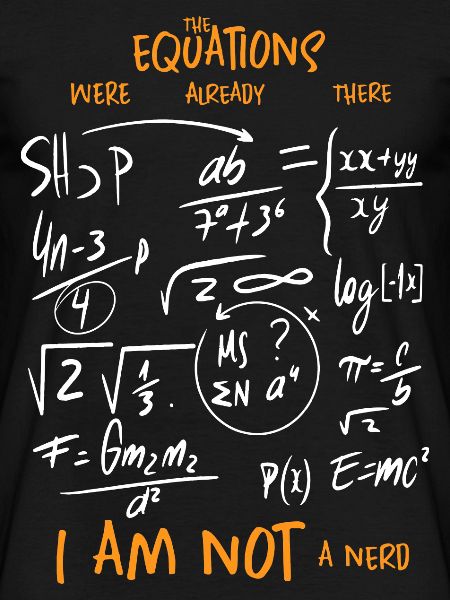 THE
EQUATIONS
WERE ALREADY THERE
SHOP
ab / 7ᵃ+3⁶ = { xx+yy / xy
4n-3 / 4 p
√2 ∞
log[-1x]
√2 √1/3.
MS ?
ΣN a⁴
x
π=c/b
√2
F=Gm₂m₂ / d²
P(x) E=mc²
I AM NOT A NERD